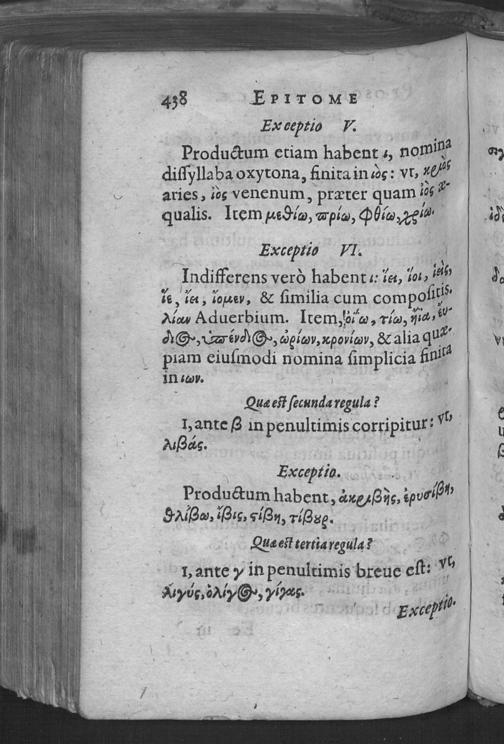 438 EPITOME
Exceptio V.
Productum etiam habent ι, nomina
dissyllaba oxytona, finita in ιὸς: vt, κριὸς
aries, ἰὸς venenum, præter quam ἰὸς æ-
qualis. Item μεθίω, πρίω, φθίω, χρίω.
Exceptio VI.
Indifferens verò habent ι: ἵει, ἵοι, ἱεὶς,
ἵε, ἵει, ἵομεν, & similia cum compositis.
λίαν Aduerbium. Item, ὀΐω, τίω, ἤϊα, εὔ-
διος, ὑπένδιος, ὠρίων, κρονίων, & alia quæ-
piam eiusmodi nomina simplicia finita
in ιων.
Quæ est secunda regula?
I, ante β in penultimis corripitur: vt,
λιβάς.
Exceptio.
Productum habent, ἀκριβὴς, ἐρυσίβη,
θλίβω, ἴβις, στίβη, τίβυρ.
Quæ est tertia regula?
I, ante γ in penultimis breue est: vt,
λιγύς, ὀλίγος, γίγας.
Exceptio.